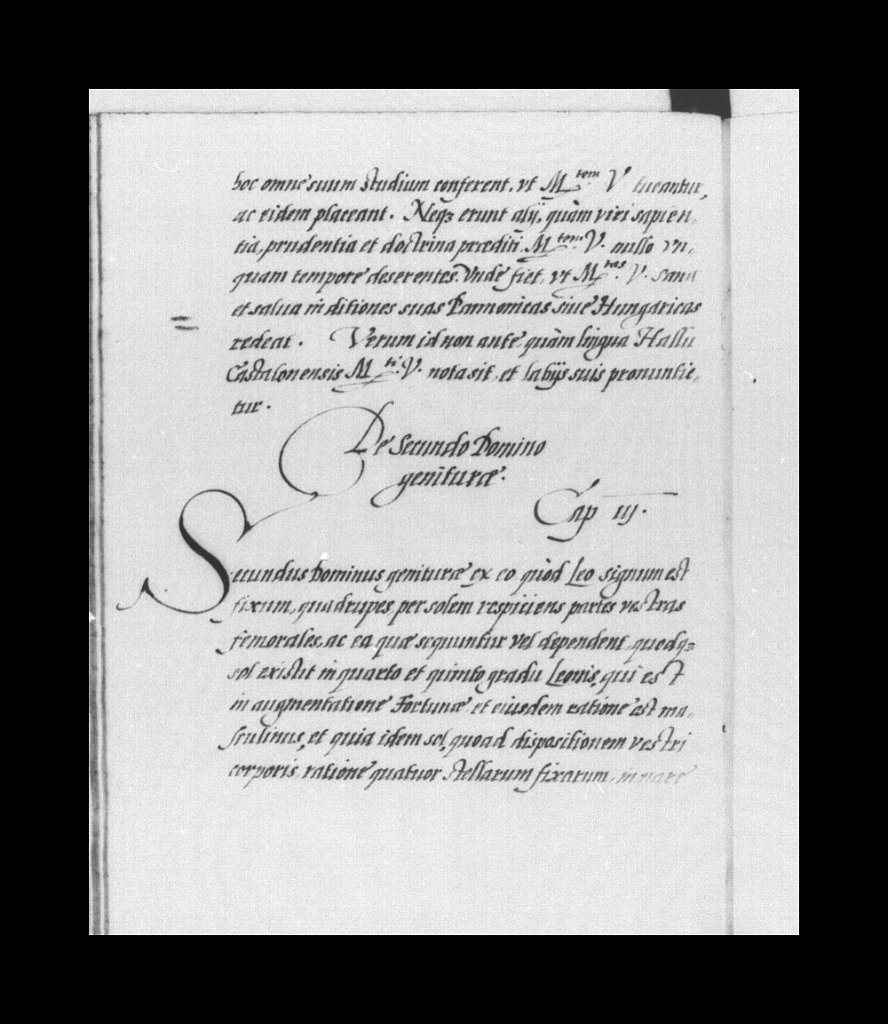 hoc omne suum studium conferent, vt M.tem V. tueantur,
ac eidem placeant. Neq3 erunt alij, quàm viri sapien,
tia, prudentia et doctrina præditi, M.tem V. nullo vn,
quam tempore deserentes. Vnde fiet, vt M.tas V. sana
et salua in ditiones suas Pannonicas siue Hungaricas
redeat. Verum id non ante, quàm lingua Hallu
Castalonensis M.ti V. nota sit, et labijs suis pronuntie,
tur.
De Secundo Domino
genituræ.
Cap iij.
Secundus Dominus genituræ ex eo quòd Leo signum est
fixum, quadrupes per solem respiciens partes vestras
femorales, ac ea quæ sequuntur vel dependent, quodq3
sol existit in quarto et quinto gradu Leonis, qui est
in augmentatione Fortunæ, et eiusdem ratione est ma,
sculinus, et quia idem sol, quoad dispositionem vestri
corporis, ratione quatuor stellarum fixarum, in